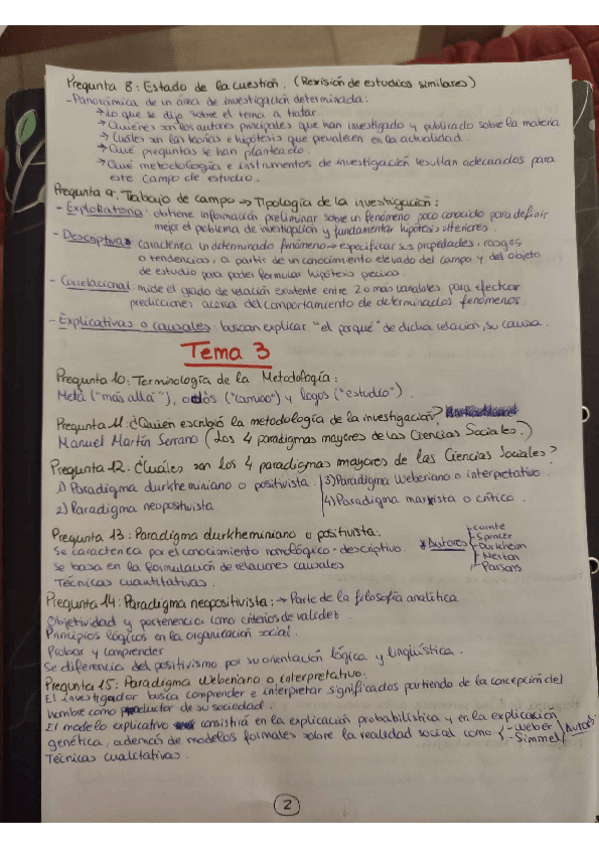 Pregunta 8: Estado de la cuestión. (Revisión de estudios similares)
- Panorámica de un área de investigación determinada:
→ Lo que se dijo sobre el tema a tratar.
→ Quiénes son los autores principales que han investigado y publicado sobre la materia
→ Cuáles son las teorías e hipótesis que prevalecen en la actualidad.
→ Qué preguntas se han planteado.
→ Qué metodología e instrumentos de investigación resultan adecuados para
este campo de estudio.
Pregunta 9. Trabajo de campo → Tipología de la investigación:
- Exploratoria: obtiene información preliminar sobre un fenómeno poco conocido para definir
mejor el problema de investigación y fundamentar hipótesis ulteriores.
- Descriptivas: caracteriza un determinado fenómeno → especificar sus propiedades, rasgos
o tendencias, a partir de un conocimiento elevado del campo y del objeto
de estudio para poder formular hipótesis
- Correlacional: mide el grado de relación existente entre 2 o más variables para efectuar
predicciones acerca del comportamiento de determinados fenómenos.
- Explicativas o causales: buscan explicar "el porqué" de dicha relación, su causa.
Tema 3
Pregunta 10: Terminología de la Metodología:
Metá ("más allá"), odós ("camino") y logos ("estudio").
Pregunta 11: ¿Quién escribió la metodología de la investigación?
Manuel Martín Serrano (Los 4 paradigmas mayores de las Ciencias Sociales.)
Pregunta 12: ¿Cuáles son los 4 paradigmas mayores de las Ciencias Sociales?
1) Paradigma durkheminiano o positivista. 3) Paradigma Weberiano o interpretativo.
2) Paradigma neopositivista 4) Paradigma marxista o crítico.
Pregunta 13: Paradigma durkheminiano o positivista:
Se caracteriza por el conocimiento nomológico-descriptivo. * Autores - Comte
Se basa en la formulación de relaciones causales - Spencer
Técnicas cuantitativas. - Durkheim
- Merton
- Parsons
Pregunta 14: Paradigma neopositivista: → Parte de la filosofía analítica
Objetividad y pertenencia como criterios de validez.
Principios lógicos en la organización social.
Probar y comprender
Se diferencia del positivismo por su orientación lógica y lingüística.
Pregunta 15: Paradigma Weberiano o interpretativo:
El investigador busca comprender e interpretar significados partiendo de la concepción del
hombre como productor de su sociedad.
El modelo explicativo consistirá en la explicación probabilística y en la explicación
genética, además de modelos formales sobre la realidad social como - Weber
- Simmel
Técnicas cualitativas.
2